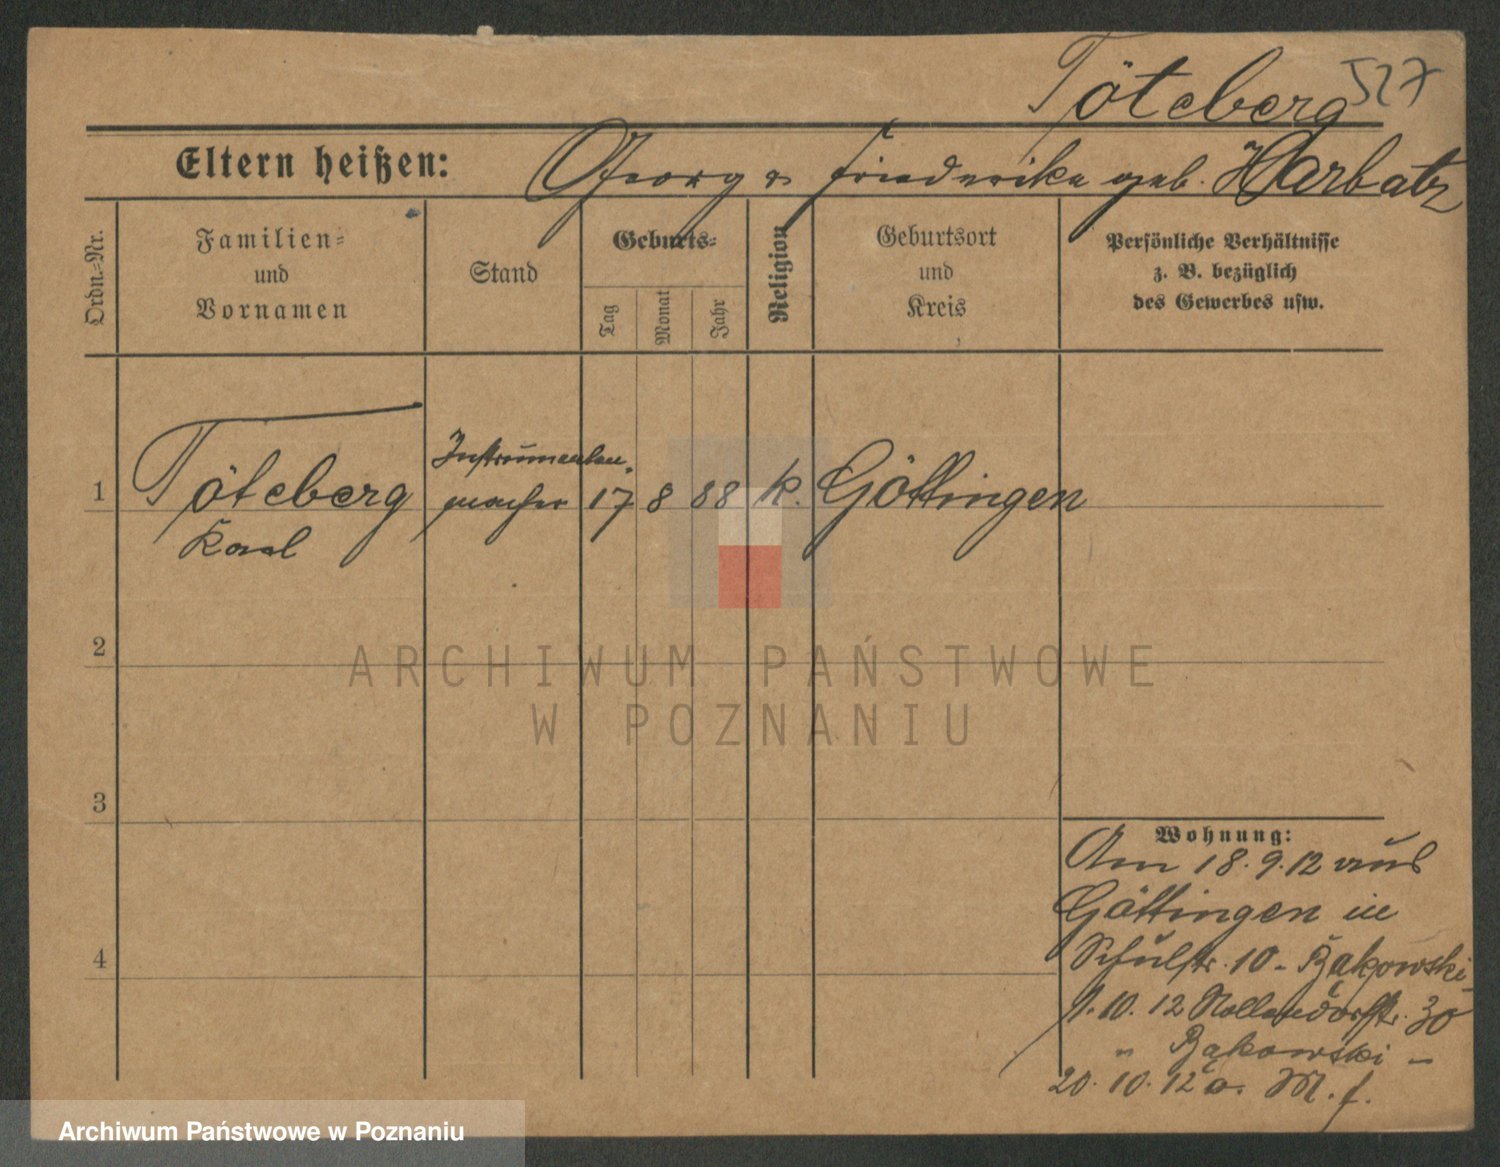 Töteberg 527
Eltern heißen: Georg u Friederike geb. Harbatz
Ordn.-Nr.
Familien-
und
Vornamen
Stand
Geburts-
Tag
Monat
Jahr
Religion
Geburtsort
und
Kreis
Persönliche Verhältnisse
z. B. bezüglich
des Gewerbes usw.
Instrumenten-
1 Töteberg macher 17 8 88 k. Göttingen
Karl
2
ARCHIWUM PAŃSTWOWE
W POZNANIU
3
Wohnung:
Am 18.9.12 aus
Göttingen in
Schulstr. 10 - Bąkowski -
1.10.12 Nollendorfstr. 30
" Bąkowski -
4
20.10.12 a. M. f.
Archiwum Państwowe w Poznaniu